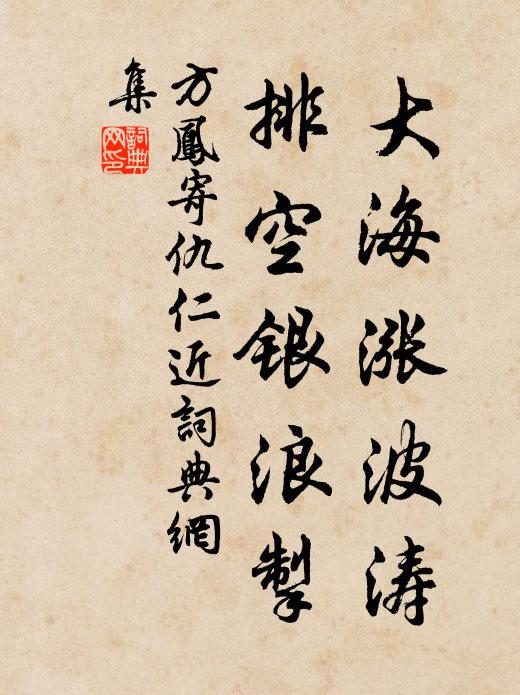 大海涨波涛
排空银浪掣
方鳳寄仇仁近詞典網
集
詞典
网印